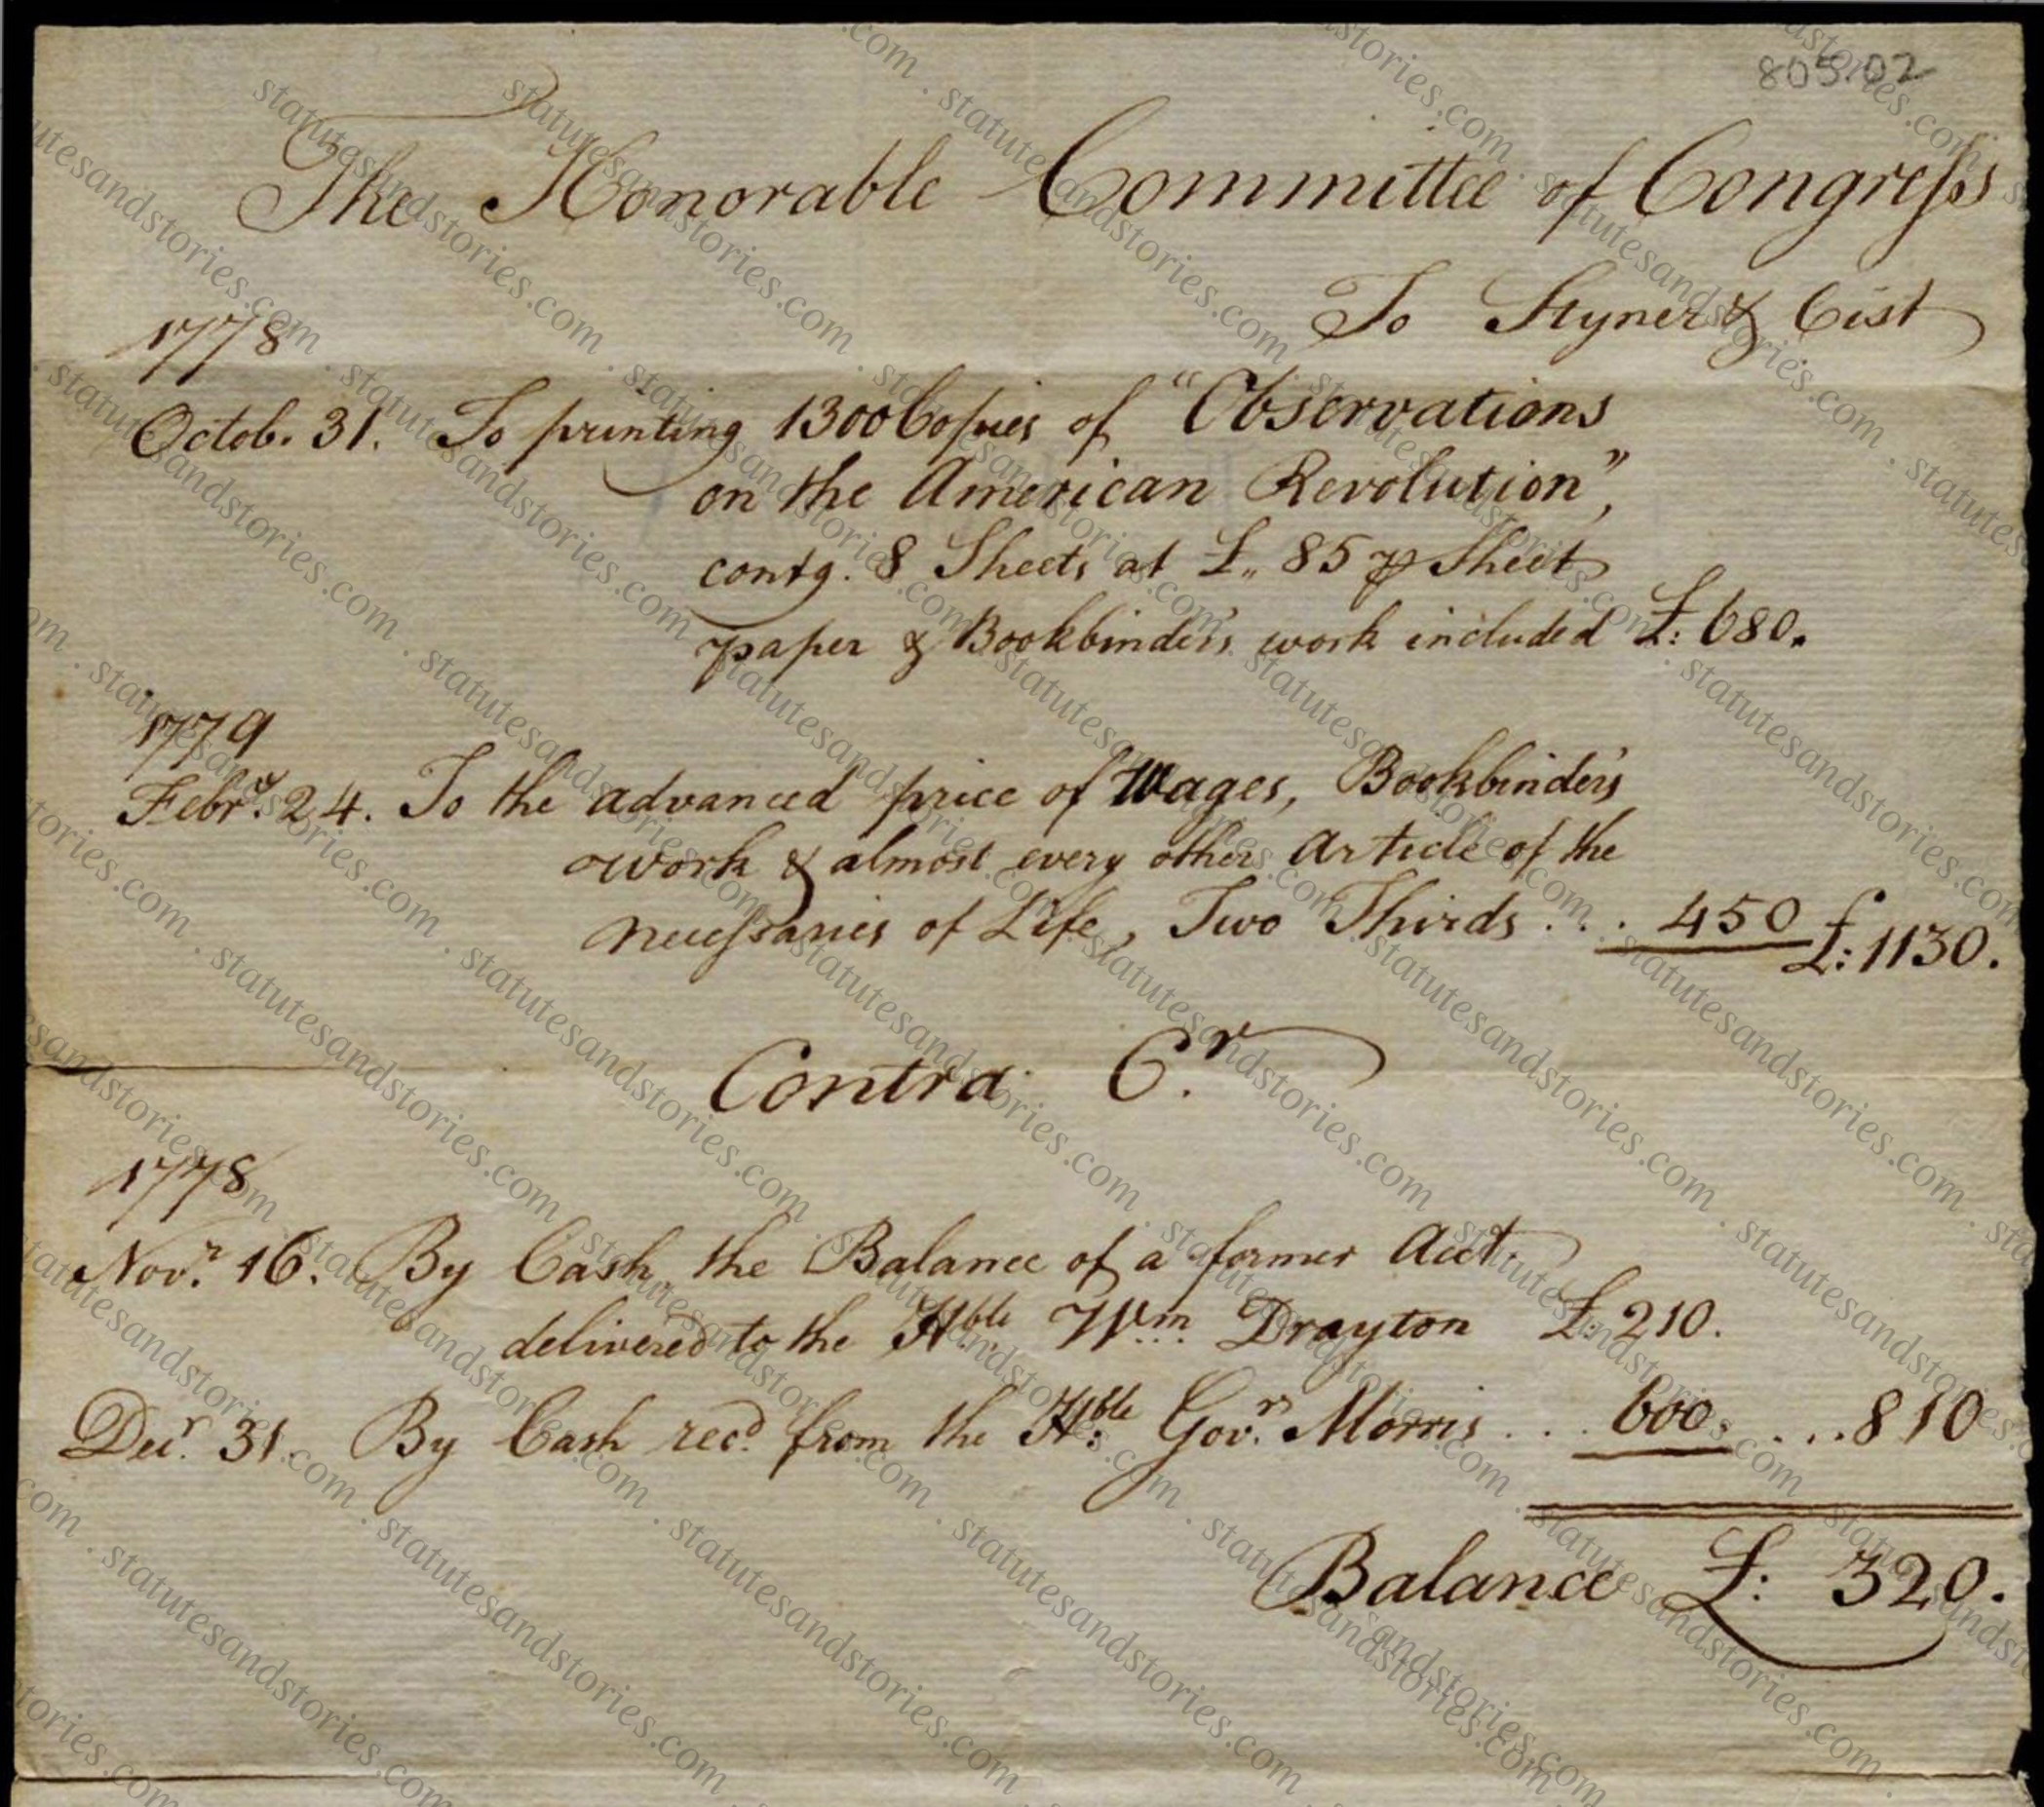 805.02
The Honorable Committee of Congress
To Styner & Cist
1778
Octob. 31. To printing 1300 Copies of "Observations
on the American Revolution",
contg. 8 Sheets at £,, 85 ⅌ Sheet
paper & Bookbinder's work included £: 680.
1779
Febry. 24. To the advanced price of Wages, Bookbinder's
work & almost every other Article of the
necessaries of Life, Two Thirds . . . 450 £: 1130.
Contra Cr.
1778
Novr. 16. By Cash the Balance of a former Acct.
delivered to the Hble Wm. Drayton £: 210.
Decr. 31. By Cash recd. from the Hble Govr. Morris . . . 600. . . . 810
Balance £: 320.
statutesandstories.com